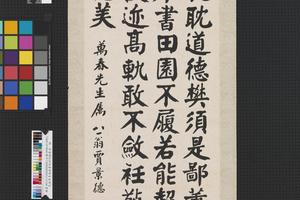 耽道德樊須是鄙董
書田園不履若能超
迹高軌敢不斂衽敬
美
萬春先生屬 八翁賈景德